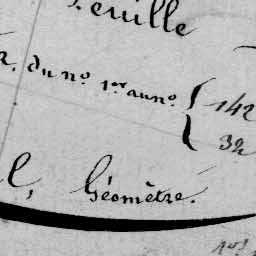 Feuille
du nº 1er au nº { 142
32
l, Géomètre.